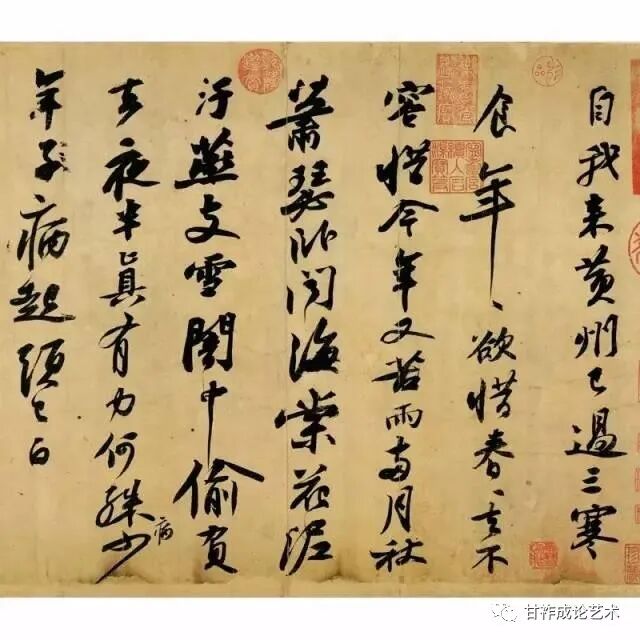 自我来黄州已過三寒
食年〻欲惜春〻去不
容惜今年又苦雨兩月秋
蕭瑟卧聞海棠花泥
汙燕支雪闇中偷負
去夜半真有力何殊少
病
年子病起須已白
甘祚成论艺术